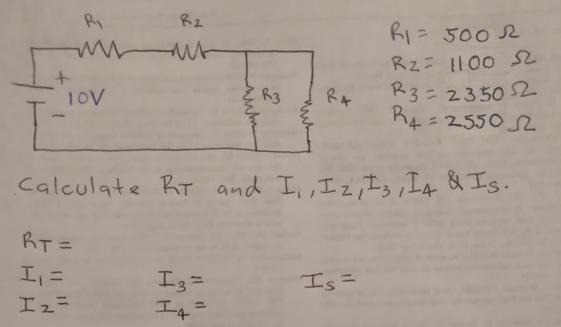 R1 R2
+
10V
-
R3 R4
R1 = 500 Ω
R2 = 1100 Ω
R3 = 2350 Ω
R4 = 2550 Ω
Calculate RT and I1, I2, I3, I4 & IS.
RT =
I1 = I3 = IS =
I2 = I4 =